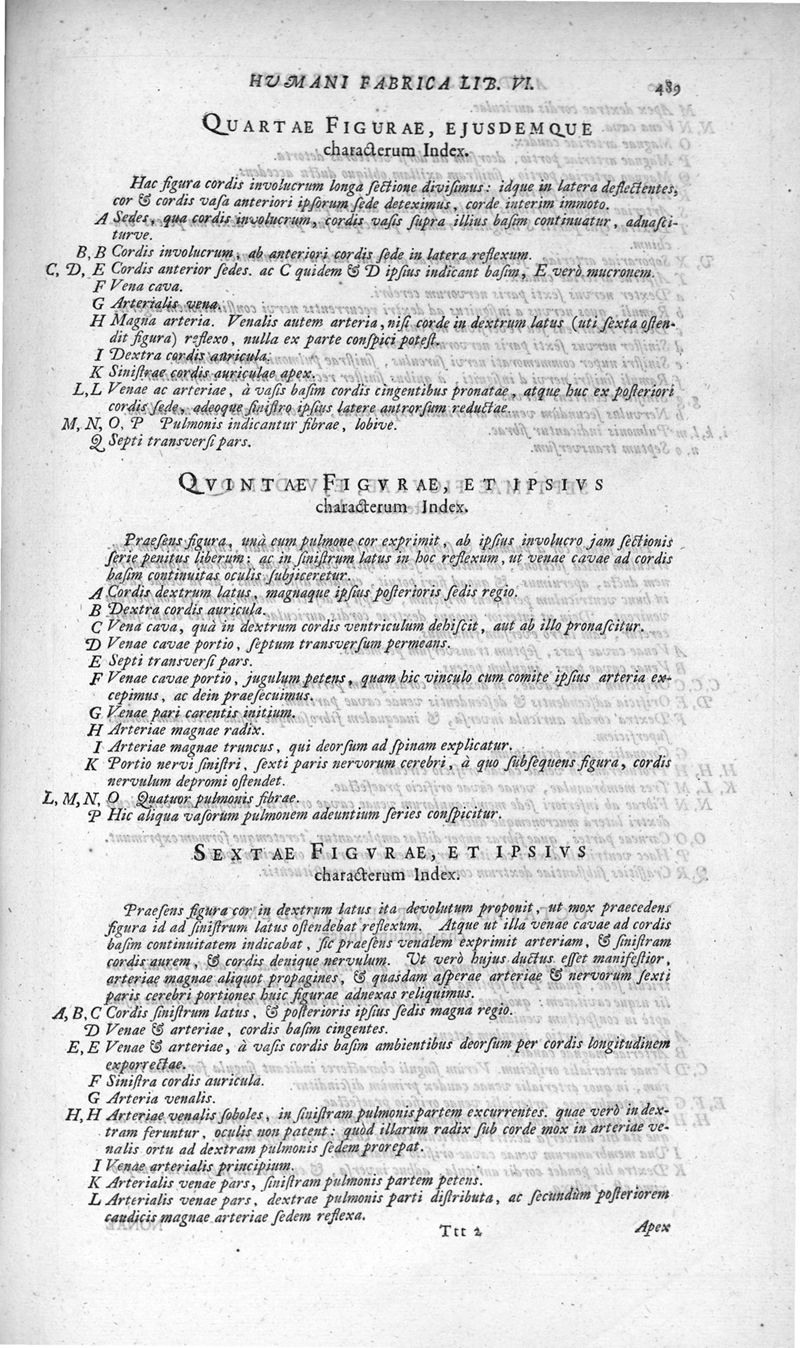 HUMANI FABRICA LIB. VI. 489
QUARTAE FIGURAE, EJUSDEMQUE
characterum Index.
Hac figura cordis involucrum longa ſectione diviſimus: idque in latera deflectentes,
cor & cordis vaſa anteriori ipſorum ſede deteximus, corde interim immoto.
A Sedes, qua cordis involucrum, cordis vaſis ſupra illius baſim continuatur, adnaſci-
turve.
B, B Cordis involucrum, ab anteriori cordis ſede in latera reflexum.
C, D, E Cordis anterior ſedes. ac C quidem & D ipſius indicant baſim, E verò mucronem.
F Vena cava.
G Arterialis vena.
H Magna arteria. Venalis autem arteria, niſi corde in dextrum latus (uti ſexta oſten-
dit figura) reflexo, nulla ex parte conſpici poteſt.
I Dextra cordis auricula.
K Siniſtrae cordis auriculae apex.
L, L Venae ac arteriae, à vaſis baſim cordis cingentibus pronatae, atque huc ex poſteriori
cordis ſede, adeoque ſiniſtro ipſius latere antrorſum reductae.
M, N, O, P Pulmonis indicantur fibrae, lobive.
Q Septi transverſi pars.
QVINTAE FIGVRAE, ET IPSIVS
characterum Index.
Praeſens figura, unà cum pulmone cor exprimit, ab ipſius involucro jam ſectionis
ſerie penitus liberum: ac in ſiniſtrum latus in hoc reflexum, ut venae cavae ad cordis
baſim continuitas oculis ſubjiceretur.
A Cordis dextrum latus, magnaque ipſius poſterioris ſedis regio.
B Dextra cordis auricula.
C Vena cava, quà in dextrum cordis ventriculum dehiſcit, aut ab illo pronaſcitur.
D Venae cavae portio, ſeptum transverſum permeans.
E Septi transverſi pars.
F Venae cavae portio, jugulum petens, quam hic vinculo cum comite ipſius arteria ex-
cepimus, ac dein praeſecuimus.
G Venae pari carentis initium.
H Arteriae magnae radix.
I Arteriae magnae truncus, qui deorſum ad ſpinam explicatur.
K Portio nervi ſiniſtri, ſexti paris nervorum cerebri, à quo ſubſequens figura, cordis
nervulum depromi oſtendet.
L, M, N, O Quatuor pulmonis fibrae.
P Hic aliqua vaſorum pulmonem adeuntium ſeries conſpicitur.
SEXTAE FIGVRAE, ET IPSIVS
characterum Index.
Praeſens figura cor in dextrum latus ita devolutum proponit, ut mox praecedens
figura id ad ſiniſtrum latus oſtendebat reflexum. Atque ut illa venae cavae ad cordis
baſim continuitatem indicabat, ſic praeſens venalem exprimit arteriam, & ſiniſtram
cordis aurem, & cordis denique nervulum. Ut verò hujus ductus eſſet manifeſtior,
arteriae magnae aliquot propagines, & quasdam aſperae arteriae & nervorum ſexti
paris cerebri portiones huic figurae adnexas reliquimus.
A, B, C Cordis ſiniſtrum latus, & poſterioris ipſius ſedis magna regio.
D Venae & arteriae, cordis baſim cingentes.
E, E Venae & arteriae, à vaſis cordis baſim ambientibus deorſum per cordis longitudinem
exporrectae.
F Siniſtra cordis auricula.
G Arteria venalis.
H, H Arteriae venalis ſoboles, in ſiniſtram pulmonis partem excurrentes. quae verò in dex-
tram feruntur, oculis non patent: quòd illarum radix ſub corde mox in arteriae ve-
nalis ortu ad dextram pulmonis ſedem prorepat.
I Venae arterialis principium.
K Arterialis venae pars, ſiniſtram pulmonis partem petens.
L Arterialis venae pars, dextrae pulmonis parti diſtributa, ac ſecundùm poſteriorem
caudicis magnae arteriae ſedem reflexa.
Ttt 2 Apex